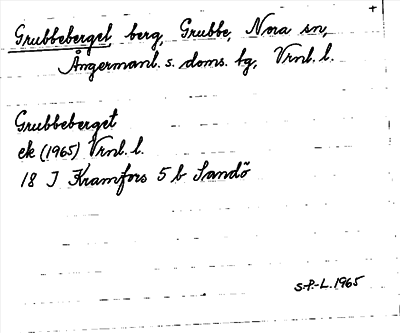 +
Grubbeberget berg, Grubbe, Nora sn,
Ångermanl. s. doms. tg, Vrnl. l.
Grubbeberget
ek (1965) Vrnl. l.
18 J Kramfors 5 b Sandö
S.P.-L. 1965